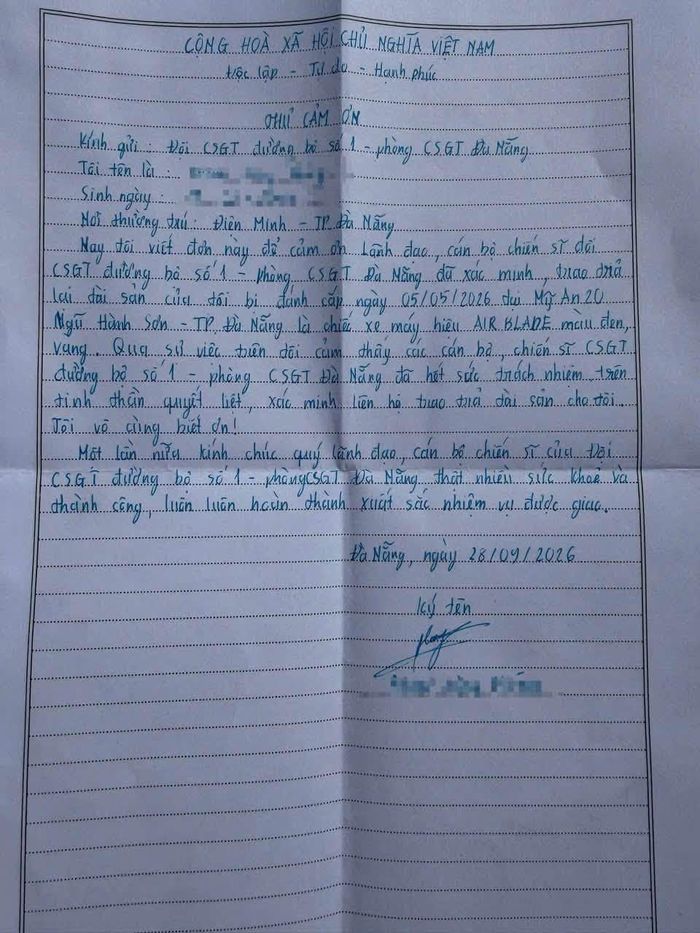 CỘNG HOÀ XÃ HỘI CHỦ NGHĨA VIỆT NAM
Độc lập - Tự do - Hạnh phúc
THƯ CẢM ƠN
Kính gửi : Đội CSGT đường bộ số 1 - phòng CSGT Đà Nẵng
Tôi tên là :
Sinh ngày :
Nơi thường trú : Điện Minh - TP Đà Nẵng
Nay tôi viết đơn này để cảm ơn lãnh đạo, cán bộ chiến sĩ đội
CSGT đường bộ số 1 - phòng CSGT Đà Nẵng đã xác minh, trao trả
lại tài sản của tôi bị đánh cắp ngày 05/05/2026 tại Mỹ An 20
Ngũ Hành Sơn - TP, Đà Nẵng là chiếc xe máy hiệu AIR BLADE màu đen,
vàng. Qua sự việc trên tôi cảm thấy các cán bộ, chiến sĩ CSGT
đường bộ số 1 - phòng CSGT Đà Nẵng đã hết sức trách nhiệm, trên
tinh thần quyết liệt, xác minh liên hệ trao trả tài sản cho tôi.
Tôi vô cùng biết ơn!
Một lần nữa kính chúc quý lãnh đạo, cán bộ chiến sĩ của Đội
CSGT đường bộ số 1 - phòng CSGT Đà Nẵng thật nhiều sức khoẻ và
thành công, luôn luôn hoàn thành xuất sắc nhiệm vụ được giao.
Đà Nẵng, ngày 28/09/2026
Ký tên